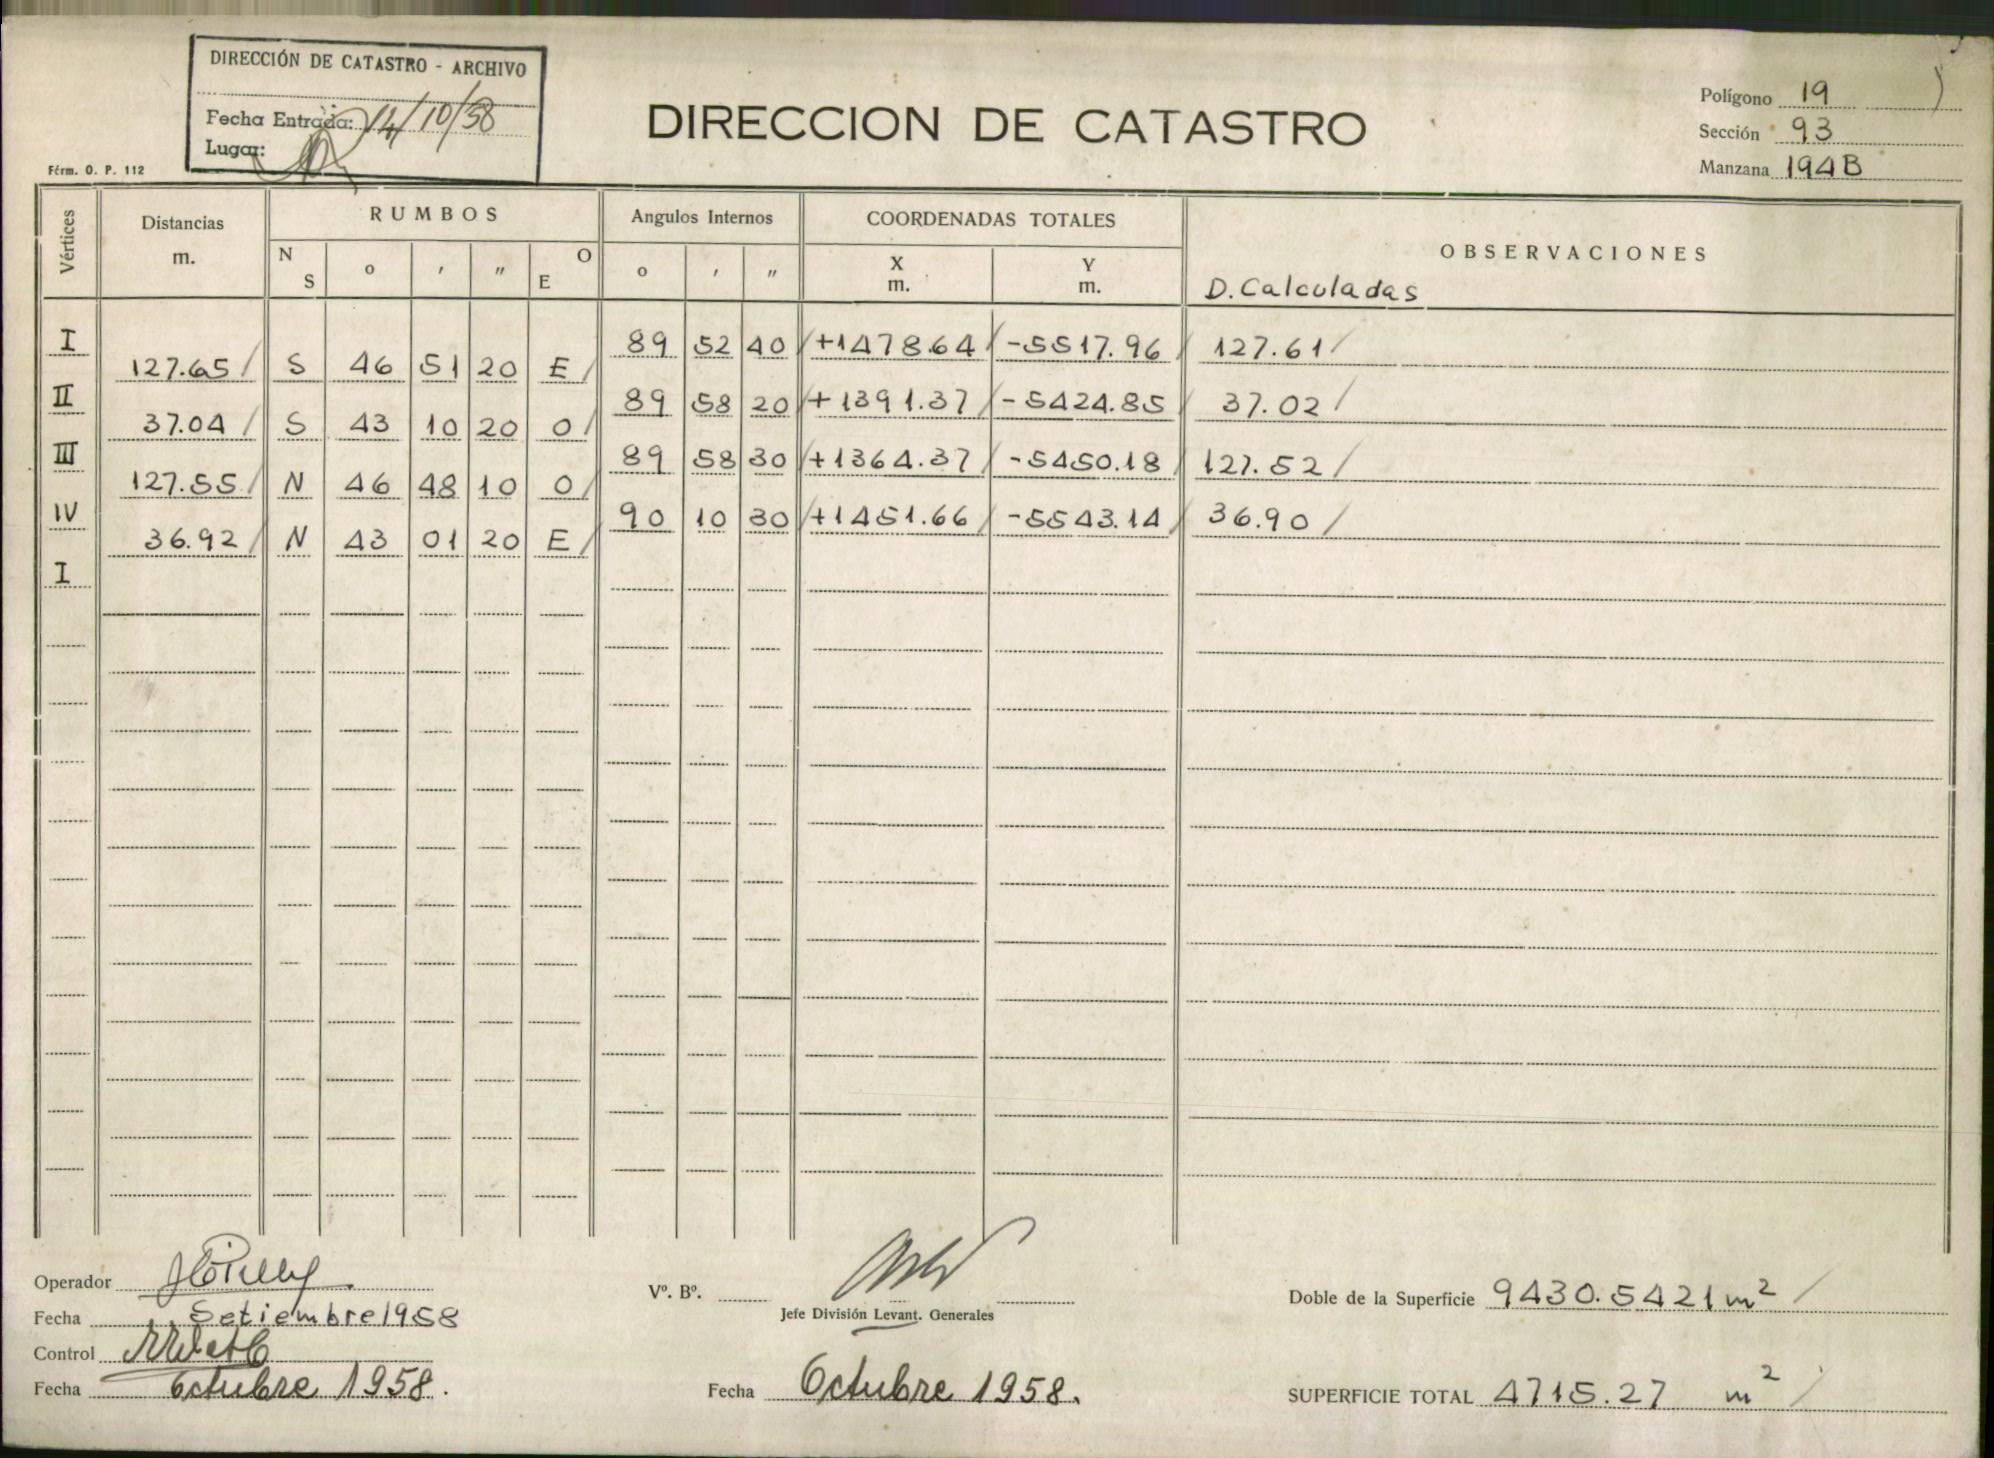 DIRECCIÓN DE CATASTRO - ARCHIVO
Fecha Entrada: 14/10/58
Lugar:
Fórm. O. P. 112
DIRECCION DE CATASTRO
Polígono 19
Sección 93
Manzana 194B
Vértices
Distancias
m.
RUMBOS
N
S
o
′
″
O
E
Angulos Internos
o
′
″
COORDENADAS TOTALES
X
m.
Y
m.
OBSERVACIONES
D. Calculadas
I 89 52 40 +1478.64 -5517.96 127.61
127.65 S 46 51 20 E
II 89 58 20 +1391.37 -5424.85 37.02
37.04 S 43 10 20 O
III 89 58 30 +1364.37 -5450.18 127.52
127.55 N 46 48 10 O
IV 90 10 30 +1451.66 -5543.14 36.90
36.92 N 43 01 20 E
I
Operador
Fecha Setiembre 1958
Control
Fecha Octubre 1958.
Vº. Bº.
Jefe División Levant. Generales
Fecha Octubre 1958.
Doble de la Superficie 9430.5421 m²
SUPERFICIE TOTAL 4715.27 m²